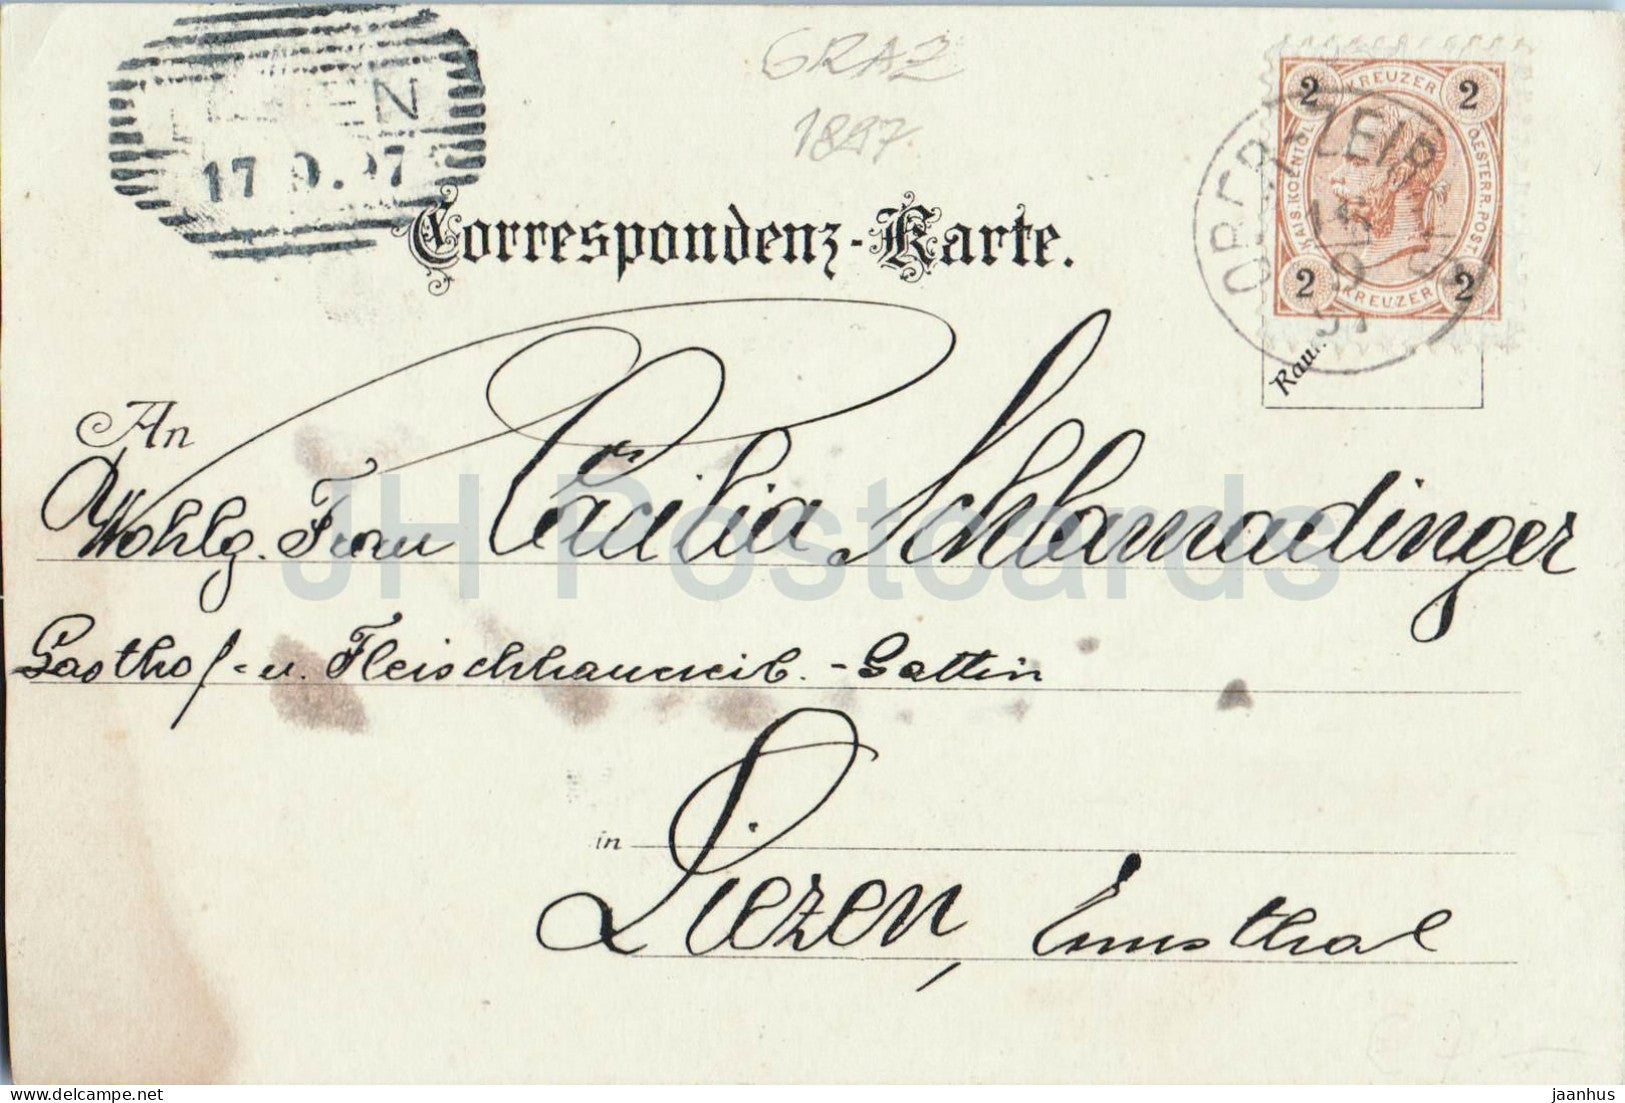 GRAZ
1897
17 9.97
2 KREUZER 2
KAIS. KOENIGL.
OESTERR. POST
2 KREUZER 2
Correspondenz-Karte.
An
Wohlg. Frau Cäcilia Schlamadinger
Gasthof- u. Fleischhauereib. - Gattin
in
Liezen, Ennsthal
JH Postcards
jaanhus